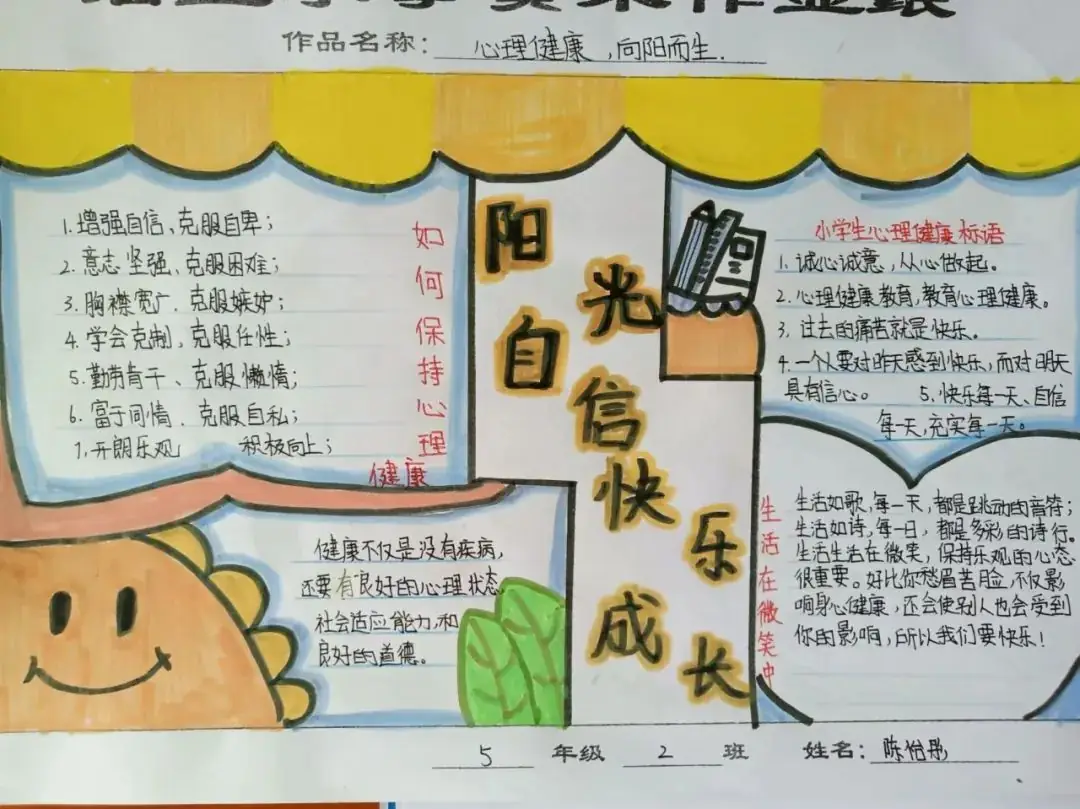 作品名称: 心理健康,向阳而生.
1.增强自信、克服自卑;
2.意志坚强、克服困难;
3.胸襟宽广、克服嫉妒;
4.学会克制、克服任性;
5.勤劳肯干、克服懒惰;
6.富于同情、克服自私;
7.开朗乐观 积极向上;
如何保持心理
健康
阳光
自信
快乐
成长
小学生心理健康标语
1.诚心诚意,从心做起。
2.心理健康教育,教育心理健康。
3.过去的痛苦就是快乐。
4.一个人要对昨天感到快乐,而对明天
具有信心。 5.快乐每一天、自信
每一天,充实每一天。
健康不仅是没有疾病,
还要有良好的心理状态
社会适应能力,和
良好的道德。
生活在微笑中
生活如歌,每一天,都是跳动的音符;
生活如诗,每一日,都是多彩的诗行。
生活生活在微笑,保持乐观的心态
很重要。好比你愁眉苦脸,不仅影
响身心健康,还会使别人也会受到
你的影响,所以我们要快乐!
5 年级 2 班 姓名: 陈怡彤